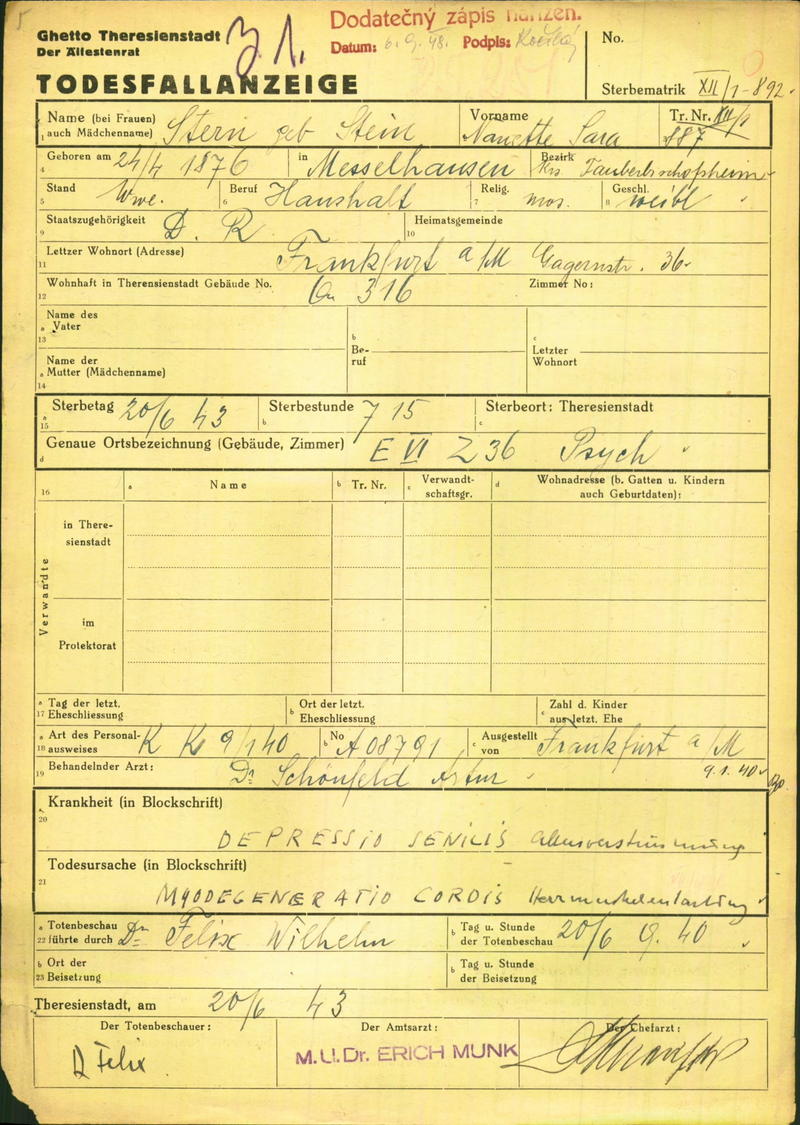 Ghetto Theresienstadt
Der Ältestenrat
31.
Dodatečný zápis nařízen.
Datum: 6. 9. 48. Podpis:
No.
TODESFALLANZEIGE
Sterbematrik XII/1-892.
Name (bei Frauen) auch Mädchenname) Stern geb Stein
Vorname Nanette Sara
Tr. Nr. XII/1 887
Geboren am 24/4 1876 in Messelhausen Bezirk Krs Tauberbischofsheim
Stand Wwe. Beruf Haushalt Relig. mos. Geschl. weibl
Staatszugehörigkeit D. R. Heimatsgemeinde
Lettzer Wohnort (Adresse) Frankfurt a/M Gagernstr. 36
Wohnhaft in Theresienstadt Gebäude No. Qu 316 Zimmer No:
Name des Vater
Beruf
Letzter Wohnort
Name der Mutter (Mädchenname)
Sterbetag 20/6 43 Sterbestunde 7 15 Sterbeort: Theresienstadt
Genaue Ortsbezeichnung (Gebäude, Zimmer) E VI Z 36 Psych
16 a Name b Tr. Nr. c Verwandtschaftsgr. d Wohnadresse (b. Gatten u. Kindern auch Geburtdaten):
Verwandte
in Theresienstadt
im Protektorat
17 a Tag der letzt. Eheschliessung b Ort der letzt. Eheschliessung c Zahl d. Kinder aus letzt. Ehe
18 a Art des Personalausweises K K 9/1 40 b No A 08791 c Ausgestellt von Frankfurt a/M
9. 1. 40
19 Behandelnder Arzt: Dr Schönfeld Artur
Krankheit (in Blockschrift)
20
DEPRESSIO SENILIS Altersverstimmung
Todesursache (in Blockschrift)
21
MYODEGENERATIO CORDIS Herzmuskelentartung
22 a Totenbeschau führte durch Dr Felix Wilhelm b Tag u. Stunde der Totenbeschau 20/6 9. 40
23 b Ort der Beisetzung b Tag u. Stunde der Beisetzung
Theresienstadt, am 20/6 43
Der Totenbeschauer: Der Amtsarzt: Der Chefarzt:
D Felix
M.U.Dr. ERICH MUNK